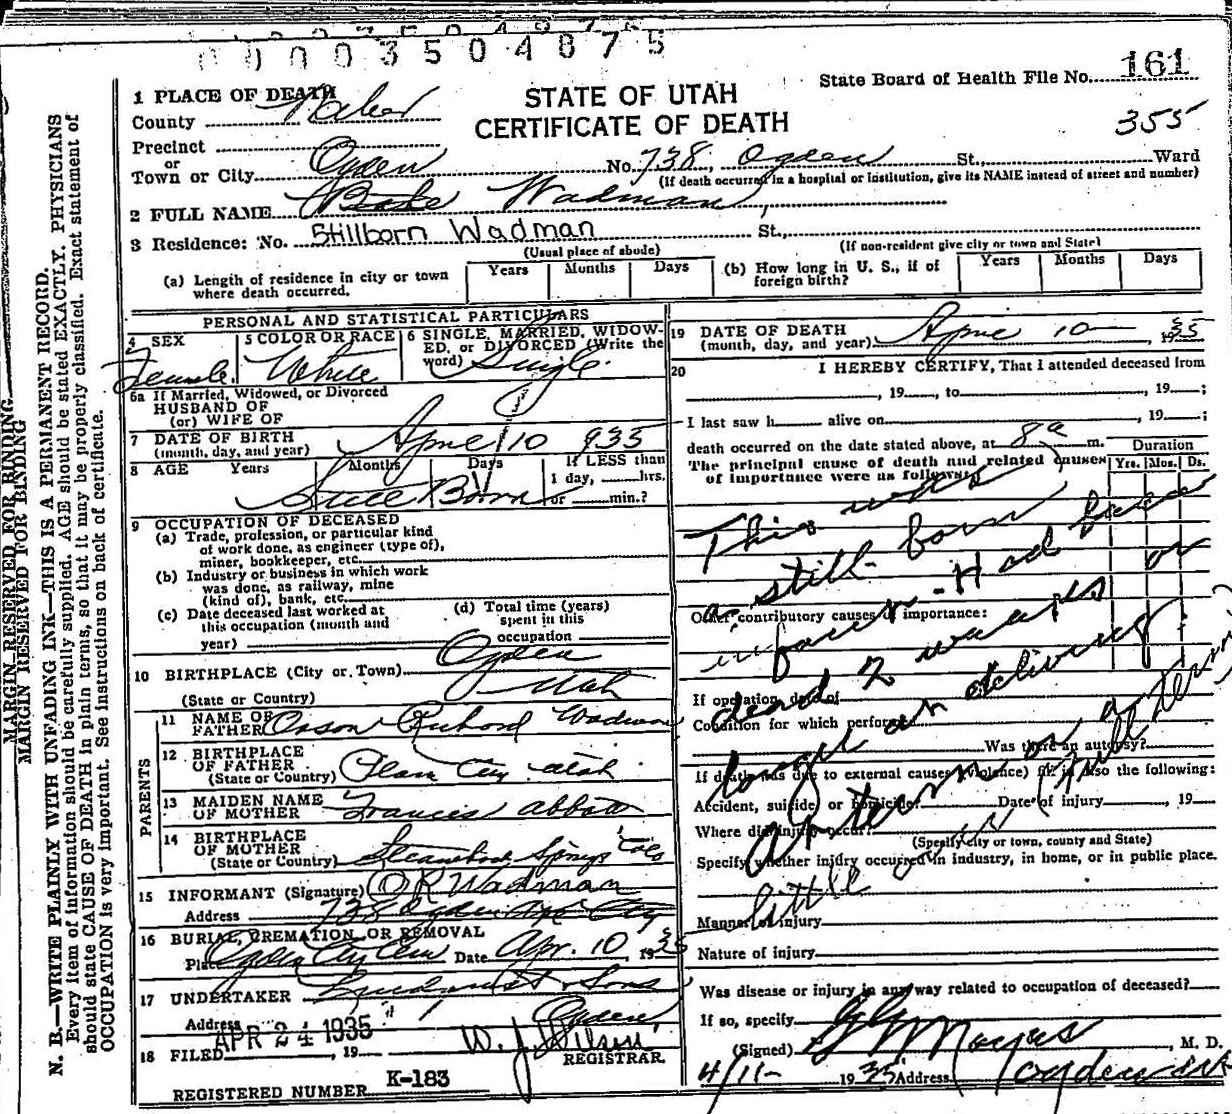 0003504875
State Board of Health File No. 161
1 PLACE OF DEATH
STATE OF UTAH
County Weber
CERTIFICATE OF DEATH
355
Precinct
or
Town or City Ogden No. 738, Ogden St., Ward
(If death occurred in a hospital or institution, give its NAME instead of street and number)
2 FULL NAME Wadman,
3 Residence: No. Stillborn Wadman St.,
(Usual place of abode) (If non-resident give city or town and State)
(a) Length of residence in city or town where death occurred. Years Months Days
(b) How long in U. S., if of foreign birth? Years Months Days
PERSONAL AND STATISTICAL PARTICULARS
4 SEX Female
5 COLOR OR RACE White
6 SINGLE, MARRIED, WIDOW-
ED, or DIVORCED (Write the
word) Single
6a If Married, Widowed, or Divorced
HUSBAND OF
(or) WIFE OF
7 DATE OF BIRTH
(month, day, and year) April 10 935
8 AGE Years Months Days If LESS than
1 day, hrs.
or min.?
Still Born
9 OCCUPATION OF DECEASED
(a) Trade, profession, or particular kind
of work done, as engineer (type of),
miner, bookkeeper, etc.
(b) Industry or business in which work
was done, as railway, mine
(kind of), bank, etc.
(c) Date deceased last worked at
this occupation (month and
year)
(d) Total time (years)
spent in this
occupation
10 BIRTHPLACE (City or Town) Ogden
(State or Country) Utah
PARENTS
11 NAME OF
FATHER Orson Richard Wadman
12 BIRTHPLACE
OF FATHER
(State or Country) Plain City Utah
13 MAIDEN NAME
OF MOTHER Frances Abbott
14 BIRTHPLACE
OF MOTHER
(State or Country) Steamboat Springs Colo
15 INFORMANT (Signature) O R Wadman
Address 738 Ogden Ave City
16 BURIAL, CREMATION, OR REMOVAL
Place Ogden City Cem Date Apr. 10, 1935
17 UNDERTAKER Lindquist & Sons
Address Ogden
18 FILED APR 24 1935, 19 W. J. Wilson
REGISTRAR.
REGISTERED NUMBER K-183
19 DATE OF DEATH
(month, day, and year) April 10 1935
20 I HEREBY CERTIFY, That I attended deceased from
, 19 , to , 19 ;
I last saw h alive on , 19 ;
death occurred on the date stated above, at 8 a m.
Duration
The principal cause of death and related causes
of importance were as follows: Yrs. Mos. Ds.
This was
a still born
Had been
Other contributory causes of importance:
dead 2 weeks or
If operation, date of
longer
Condition for which performed
Was there an autopsy?
If death was due to external causes (violence) fill in also the following:
Accident, suicide, or homicide? Date of injury , 19
Where did injury occur?
(Specify city or town, county and State)
Specify whether injury occurred in industry, in home, or in public place.
little
full term
Manner of injury
Nature of injury
Was disease or injury in any way related to occupation of deceased?
If so, specify
(Signed) , M. D.
4/11- 1935 Address Ogden
MARGIN RESERVED FOR BINDING
MARGIN RESERVED FOR BINDING
N. B.—WRITE PLAINLY WITH UNFADING INK—THIS IS A PERMANENT RECORD.
Every item of information should be carefully supplied. AGE should be stated EXACTLY. PHYSICIANS
should state CAUSE OF DEATH in plain terms, so that it may be properly classified. Exact statement of
OCCUPATION is very important. See instructions on back of certificate.